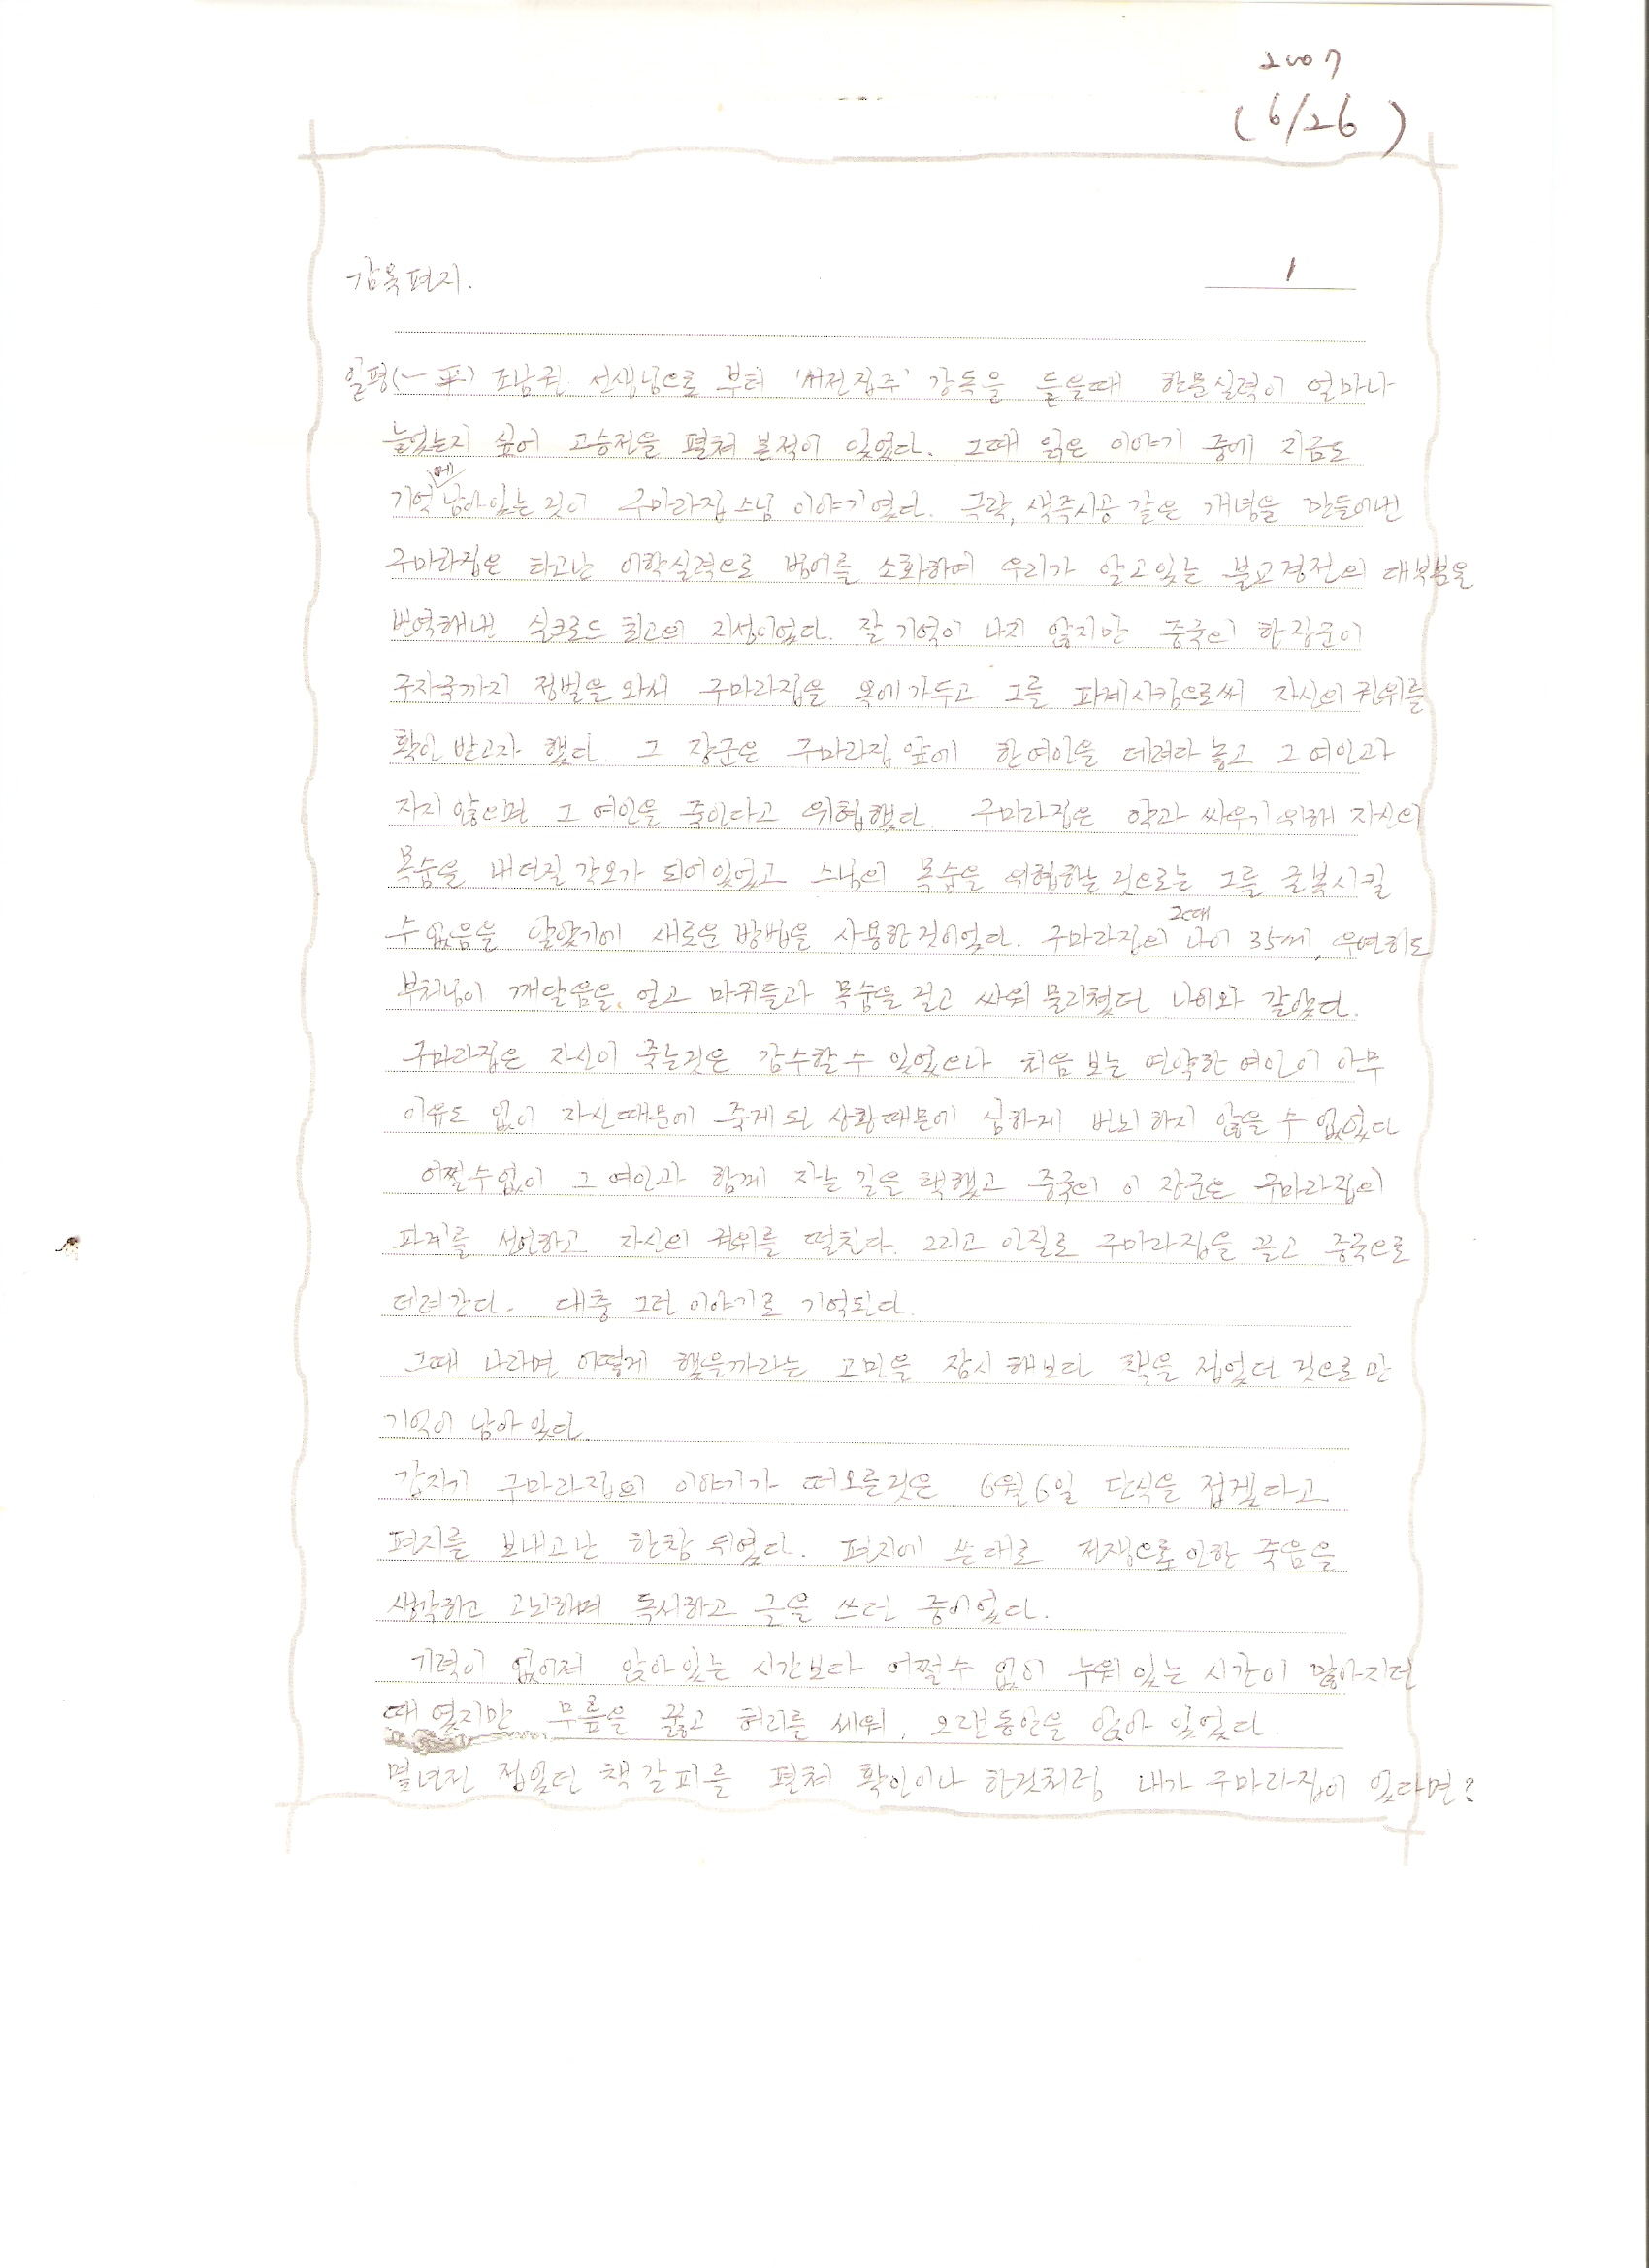 2007
(6/26)
감옥편지.
1
일평(一平) 조남권 선생님으로 부터 '서전집주' 강독을 들을때 한문실력이 얼마나
늘었는지 싶어 고승전을 펼쳐 본적이 있었다. 그때 읽은 이야기 중에 지금도
기억에 남아있는 것이 구마라집 스님 이야기 였다. 극락, 색즉시공 같은 개념을 만들어낸
구마라집은 타고난 어학실력으로 범어를 소화하여 우리가 알고있는 불교경전의 대부분을
번역해낸 실크로드 최고의 지성이었다. 잘 기억이 나지 않지만 중국의 한장군이
구자국까지 정벌을 와서 구마라집을 옥에가두고 그를 파계시킴으로써 자신의 권위를
확인 받고자 했다. 그 장군은 구마라집 앞에 한여인을 데려다 놓고 그 여인과
자지 않으면 그 여인을 죽인다고 위협했다. 구마라집은 악과 싸우기 위해 자신의
목숨을 내던질 각오가 되어있었고 스님의 목숨을 위협하는 것으로는 그를 굴복시킬
수 없음을 알았기에 새로운 방법을 사용한것이었다. 구마라집의 그때 나이 35세, 우연히도
부처님이 깨달음을 얻고 마귀들과 목숨을 걸고 싸워 물리쳤던 나이와 같았다.
구마라집은 자신이 죽는것은 감수할수 있었으나 처음 보는 연약한 여인이 아무
이유도 없이 자신때문에 죽게 된 상황때문에 심하게 번뇌 하지 않을 수 없었다
어쩔수없이 그 여인과 함께 자는 길을 택했고 중국의 이 장군은 구마라집의
파계를 선언하고 자신의 권위를 떨친다. 그리고 인질로 구마라집을 끌고 중국으로
데려간다. 대충 그런 이야기로 기억된다.
그때 나라면 어떻게 했을까라는 고민을 잠시 해보다 책을 접었던 것으로만
기억이 남아 있다.
갑자기 구마라집의 이야기가 떠오른것은 6월 6일 단식을 접겠다고
편지를 보내고난 한참 뒤였다. 편지에 쓴대로 전쟁으로 인한 죽음을
생각하고 고뇌하며 독서하고 글을 쓰던 중이었다.
기력이 없어져 앉아있는 시간보다 어쩔수 없이 누워있는 시간이 많아지던
때 였지만 무릎을 꿇고 허리를 세워, 오랜동안을 앉아 있었다.
몇년전 접었던 책갈피를 펼쳐 확인이나 한것처럼 내가 구마라집이 었다면?